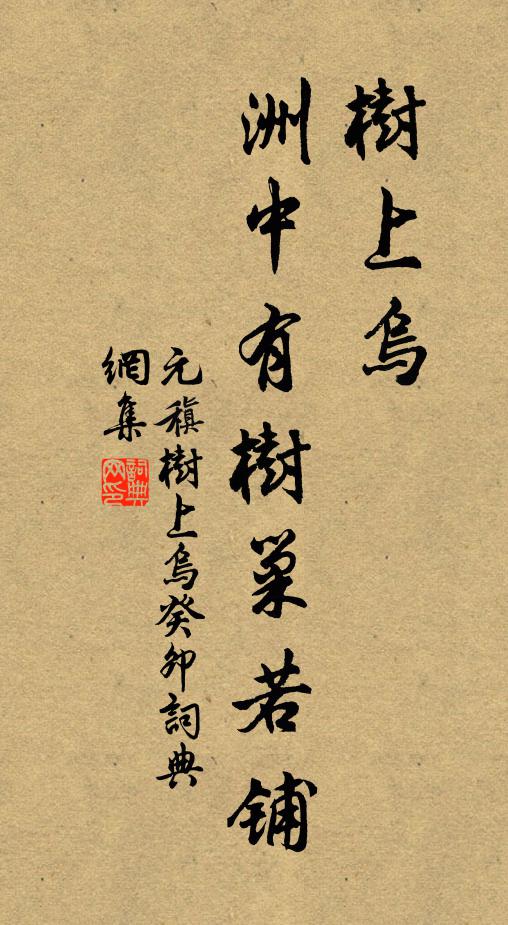 樹上烏
洲中有樹巢若鋪
元稹樹上烏癸卯詞典
網集
詞典網印